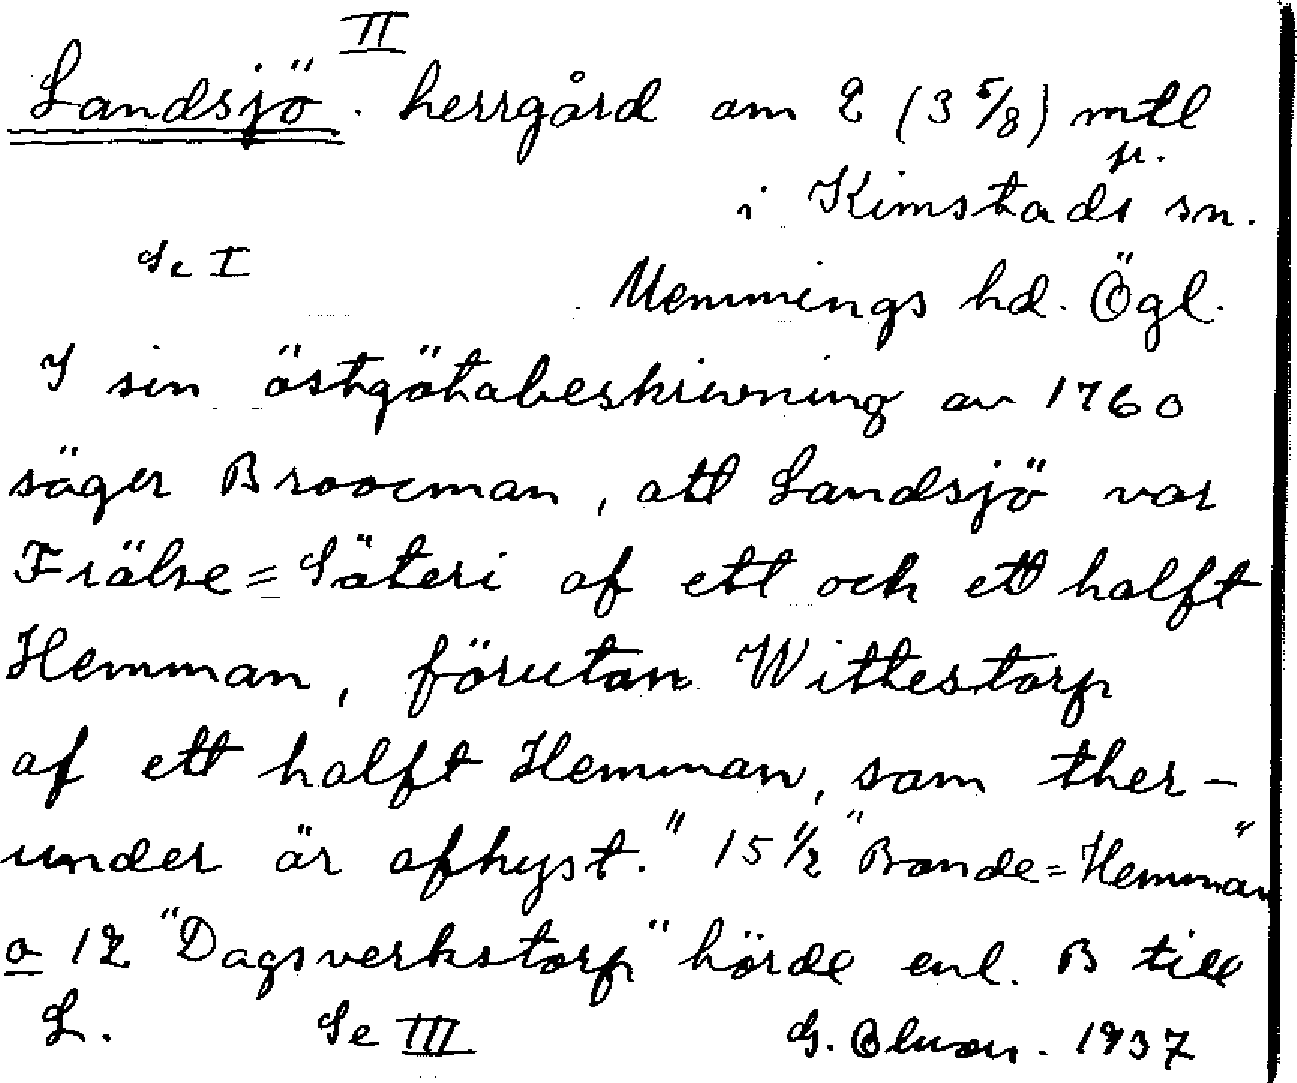 II
Landsjö . herrgård om 2 (3 5/8) mtl
fr.
i Kimstads sn.
Se I
Memmings hd. Ögl.
I sin östgötabeskrivning av 1760
säger Broocman, att Landsjö var
Frälse=Säteri af ett och ett halft
Hemman, förutan Wittestorp
af ett halft Hemman, som ther-
under är afhyst." 15 1/2 "Bonde=Hemman"
o 12 "Dagsverkstorp" hörde enl. B till
L. Se III G. 1937